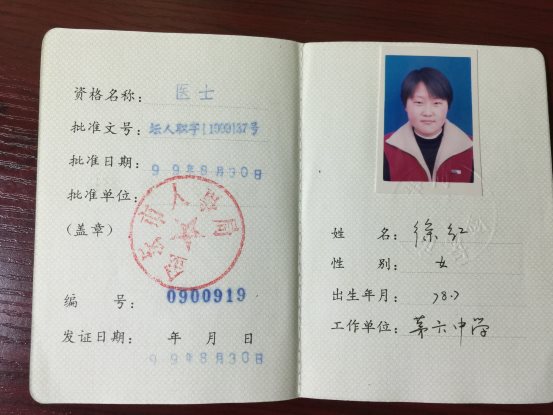 资格名称：医士
批准文号：坛人职字11909137号
批准日期：99年8月30日
批准单位：
（盖章）
金坛市人事局
编 号：0900919
发证日期： 年 月 日
99年8月30日
姓 名：徐红
性 别：女
出生年月：78.7
工作单位：第六中学